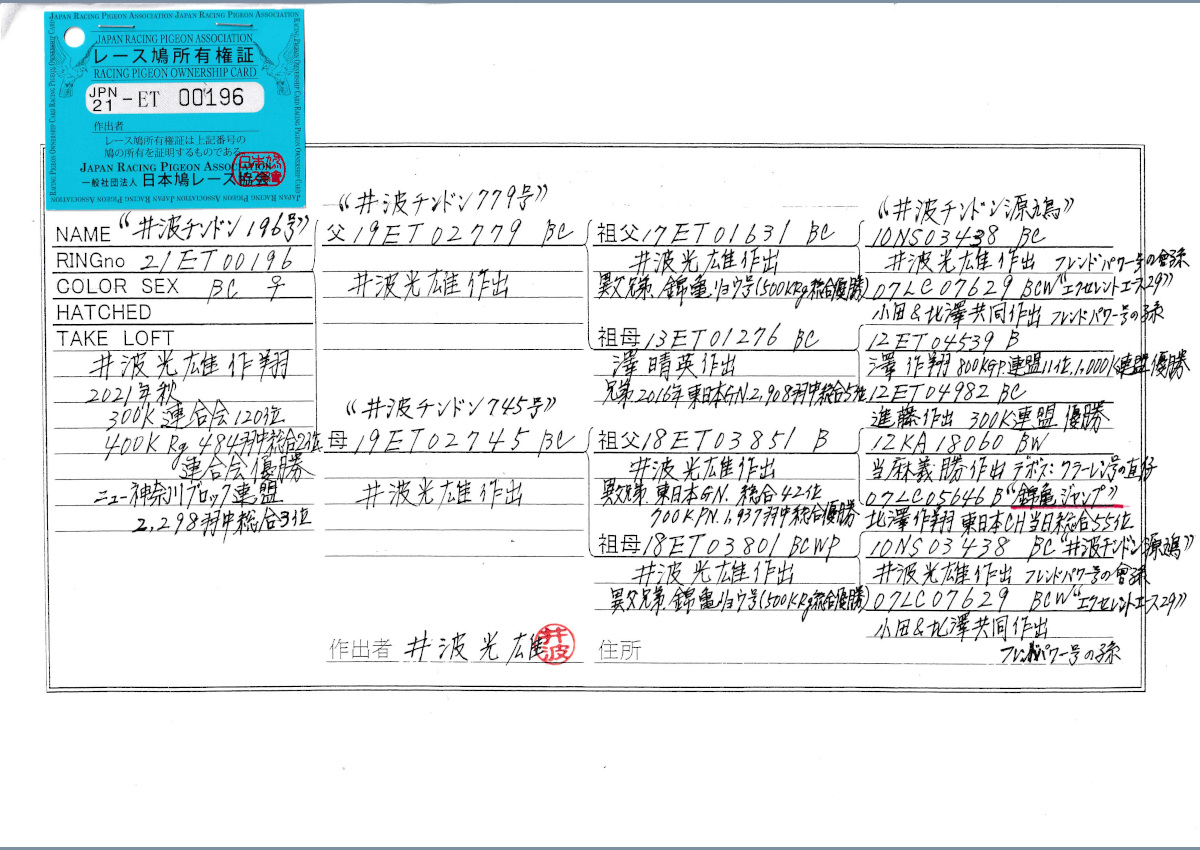 JAPAN RACING PIGEON ASSOCIATION JAPAN RACING PIGEON ASSOCIATION
JAPAN RACING PIGEON ASSOCIATION
レース鳩所有権証
RACING PIGEON OWNERSHIP CARD
JPN 21 -ET 00196
作出者
レース鳩所有権証は上記番号の
鳩の所有を証明するものである
JAPAN RACING PIGEON ASSOCIATION
一般社団法人 日本鳩レース協会
NAME "井波チンドン196号"
RINGno 21ET00196
COLOR SEX BC ♀
HATCHED
TAKE LOFT
井波光雄作翔
2021年秋
300K連合会120位
400K Rg 484羽中総合2位
連合会優勝
ニュー神奈川ブロック連盟
2,298羽中総合3位
"井波チンドン779号"
父 19ET02779 BC
井波光雄作出
"井波チンドン745号"
母 19ET02745 BC
井波光雄作出
作出者 井波光雄
井波
祖父 17ET01631 BC
井波光雄作出
異父兄弟、錦亀リョウ号(500KRg総合優勝)
祖母 13ET01276 BC
澤晴英作出
兄弟 2016年東日本GN2,908羽中総合5位
祖父 18ET03851 B
井波光雄作出
異父兄弟 東日本GN. 総合42位
700KPN.1,937羽中総合優勝
祖母 18ET03801 BCWP
井波光雄作出
異父兄弟 錦亀リョウ号(500KRg総合優勝)
住所
"井波チンドン源鳩"
10NS03438 BC
井波光雄作出 フレンドパワー号の曾孫
07LC07629 BCW "エクセレントエース29"
小田&北澤共同作出 フレンドパワー号の孫
12ET04539 B
澤 作翔 800KGP.連盟11位.1,000K連盟優勝
12ET04982 BC
進藤作出 300K連盟 優勝
12KA18060 BW
当麻義勝作出 デボス:クラーレン号の直仔
07LC05646 B "錦亀ジャンプ"
北澤作翔 東日本CH当日総合55位
10NS03438 BC "井波チンドン源鳩"
井波光雄作出 フレンドパワー号の曾孫
07LC07629 BCW "エクセレントエース29"
小田&北澤共同作出
フレンドパワー号の孫